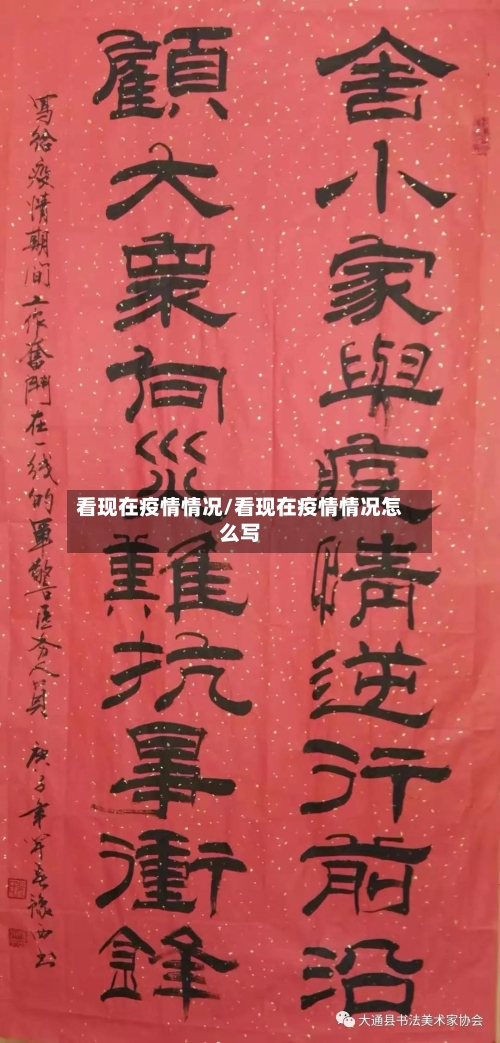 舍小家與疫情逆行前沿
顧大衆向災難抗衝鋒
寫给疫情期间工作奮鬥在一线的軍警医务人員 庚子年豫西书
看现在疫情情况/看现在疫情情况怎
么写
大通县书法美术家协会